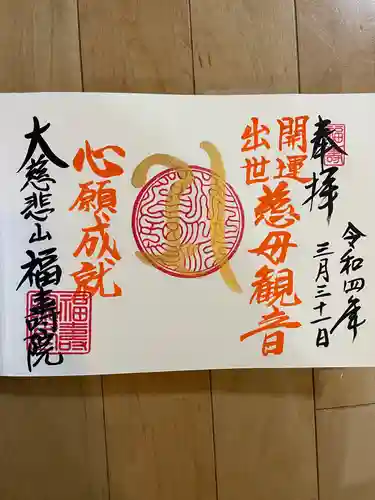 奉拝
福壽
令和四年
三月三十一日
開運
出世
慈母観音
心願成就
大慈悲山
福壽院
福壽